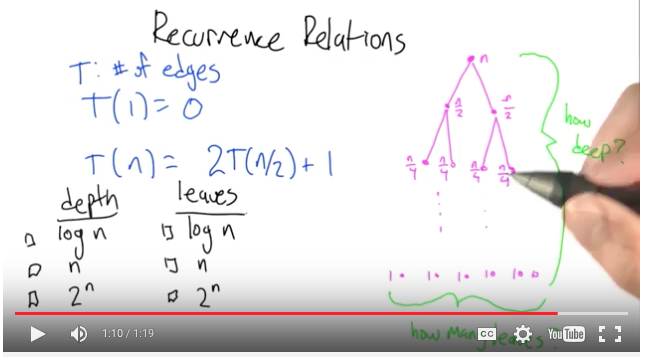 Recurrence Relations
T: # of edges
T(1) = 0
T(n) = 2T(n/2) + 1
depth leaves
log n log n
n n
2ⁿ 2ⁿ
n
n/2 n/2
n/4 n/4 n/4 n/4
1 1 1 1 1 0
how
deep?
how many leaves?
1:10 / 1:19
CC
YouTube